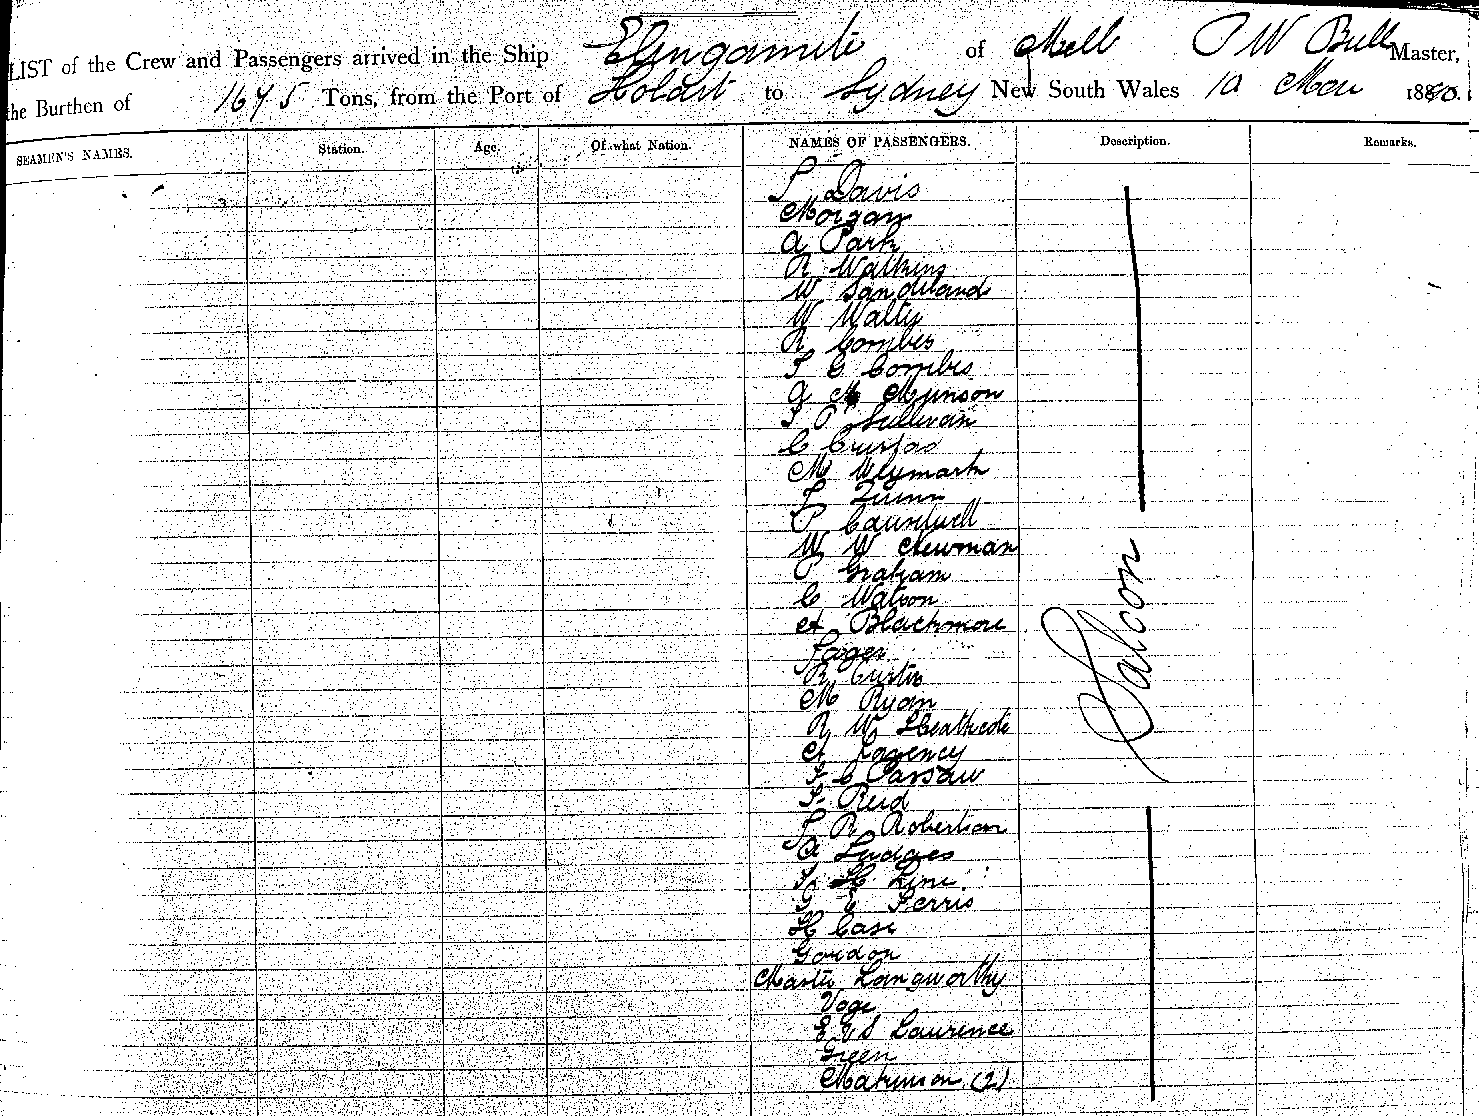 LIST of the Crew and Passengers arrived in the Ship Elingamite of Melb P W Bull Master,
the Burthen of 1675 Tons, from the Port of Hobart to Sydney New South Wales 10 Mar
SEAMEN'S NAMES. Station. Age. Of what Nation. NAMES OF PASSENGERS. Description. Remarks.
Davis
Morgan
A Park
R Watkins
W Sandiland
W
R Combes
C Combes
Munson
Sullivan
C
M Weymark
Quinn
P
W W Newman
P Graham
C Watson
A Blackmore
R Curtis
M Ryan
R W Heathcote
A
C
Reid
R Robertson
A
H Line
E Ferris
H Case
Gordon
Master Langworthy
Voge
Laurence
Green
Makinson (2)
Saloon